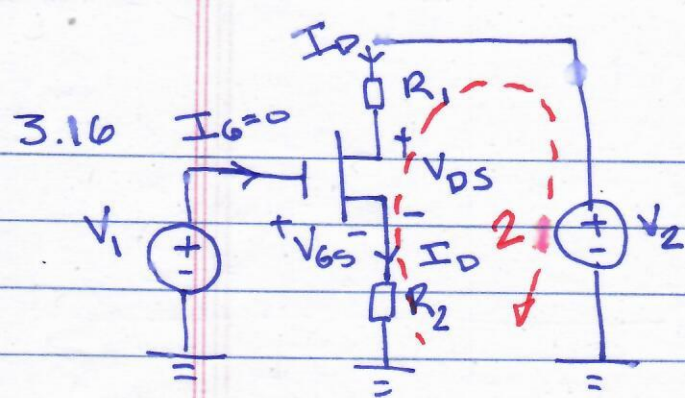 I_D
R_1
3.16 I_G=0
+
V_DS
V_1 + - + V_GS - - 2 + - V_2
I_D
R_2